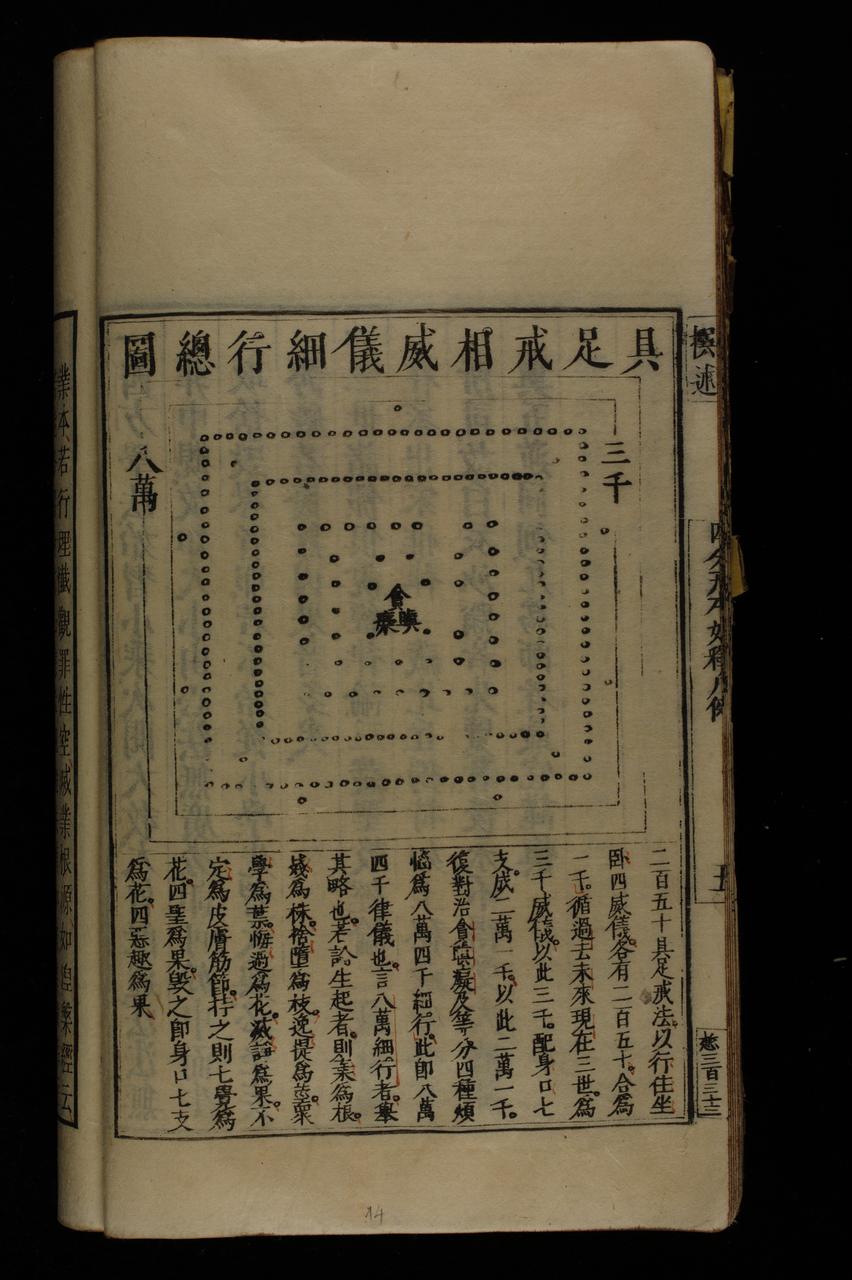 具足戒相威儀細行總圖
三千
八萬
貪
瞋
癡
二百五十具足戒法以行住坐
卧四威儀各有二百五十合為
一千循過去未來現在三世為
三千威儀以此三千配身口七
支成二萬一千以此二萬一千
復對治貪瞋癡及等分四種煩
惱為八萬四千細行此即八萬
四千律儀也言八萬細行者舉
其略也若論生起者則業為根
殘為株捨墮為枝逸提為莖眾
學為葉悔過為花滅諍為果不
定為皮膚筋節持之則七學為
花四聖為果毀之即身口七支
為花四惡趣為果
三百三十三
業本若行理懺觀罪性空滅業根源如涅槃經云
14